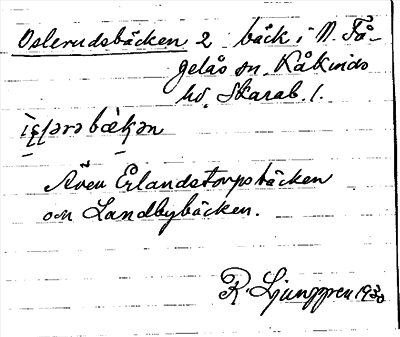 Oslerudsbäcken 2 bäck i N. Få-
gelås sn. Kåkinds
hd. Skarab. l.
bäkən
Även Erlandstorpsbäcken
och Landbybäcken.
R. Ljunggren 1930